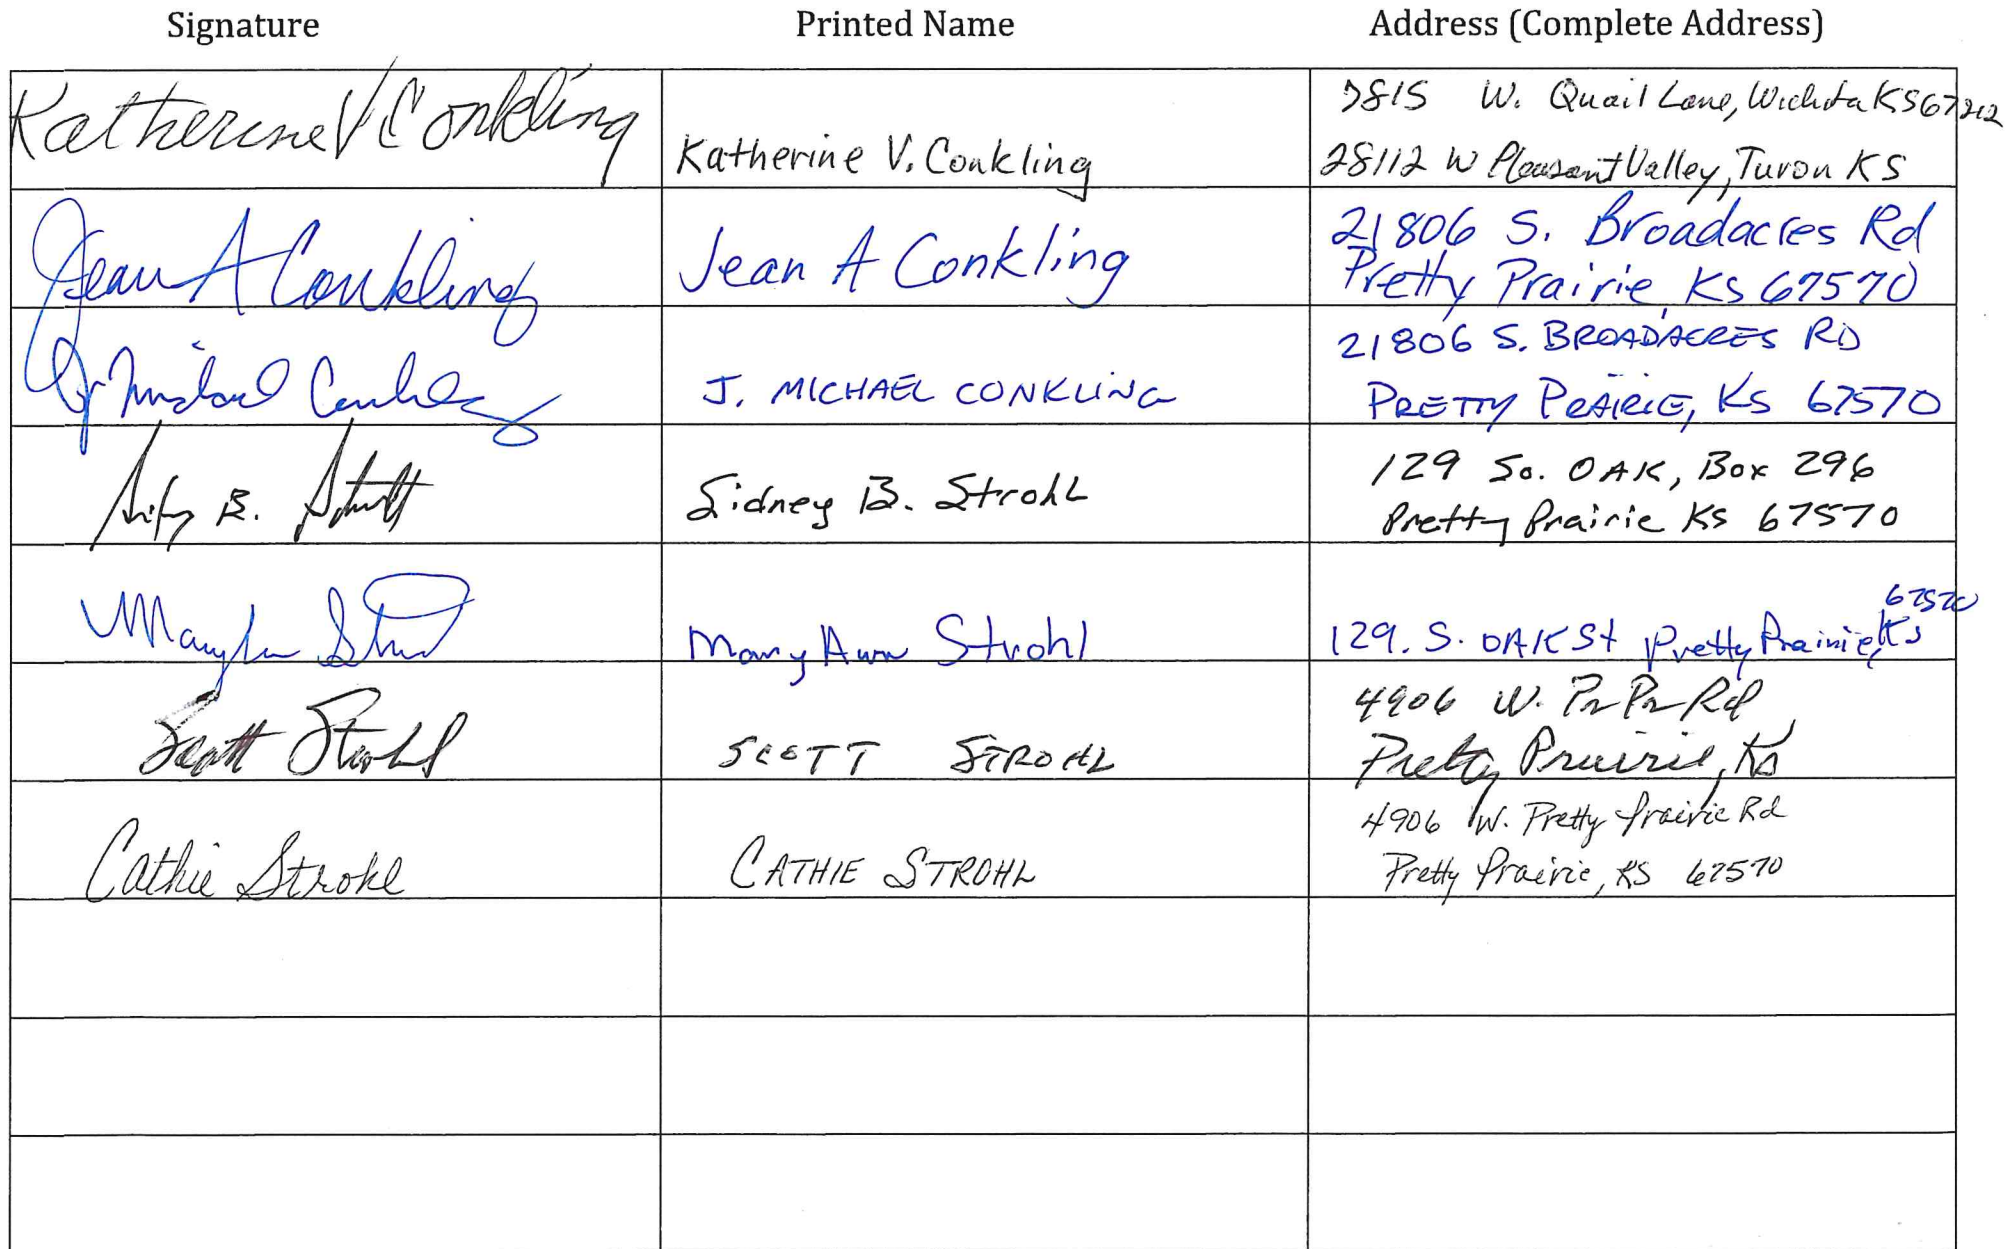 Signature Printed Name Address (Complete Address)
Katherine V Conkling
7815 W. Quail Lane, Wichita KS 67212
Katherine V. Conkling
28112 W Pleasant Valley, Turon KS
Jean A Conkling
Jean A Conkling
21806 S. Broadacres Rd
Pretty Prairie KS 67570
J Michael Conkling
J. MICHAEL CONKLING
21806 S. BROADACRES RD
PRETTY PRAIRIE, KS 67570
Sidney B. Strohl
Sidney B. Strohl
129 So. OAK, Box 296
Pretty Prairie KS 67570
Mary Ann Strohl
Mary Ann Strohl
129. S. OAK St Pretty Prairie, Ks
67570
Scott Strohl
SCOTT STROHL
4906 W. Pr Pr Rd
Pretty Prairie, Ks
Cathie Strohl
CATHIE STROHL
4906 W. Pretty Prairie Rd
Pretty Prairie, KS 67570